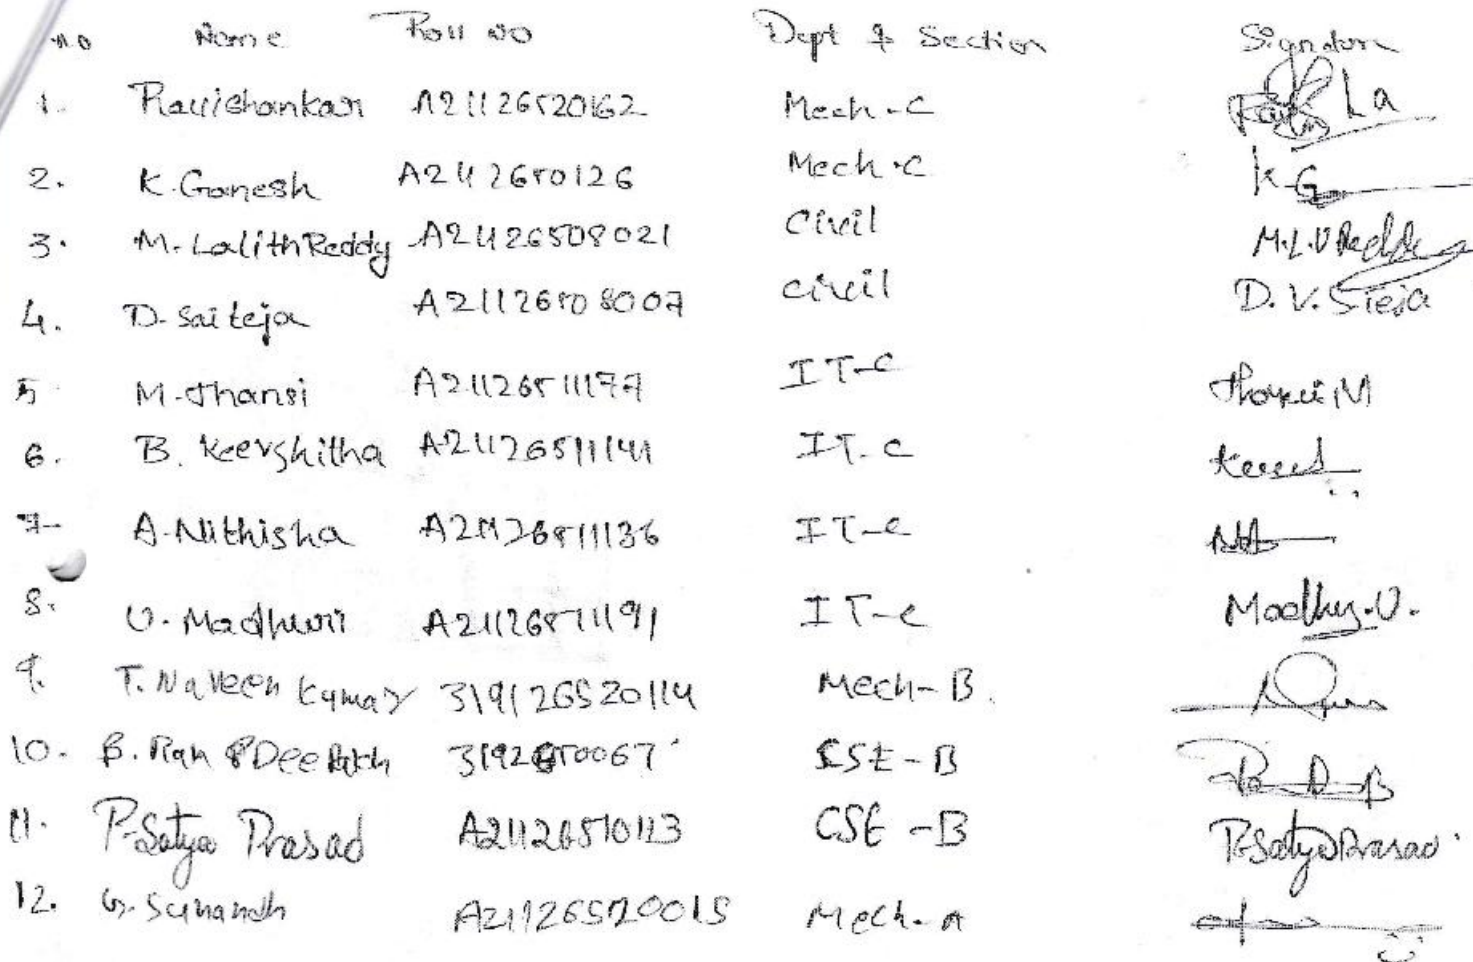 no Name Roll no Dept & Section Signature
1. Ravishankar A21126520162 Mech-C
2. K.Ganesh A21126520126 Mech-C K.G
3. M.LalithReddy A21126508021 Civil M.L.V Reddy
4. D.Saiteja A21126508007 civil D.V.Steja
5 M.Jhansi A21126511177 IT-C Jhansi M
6. B. Keershitha A21126511141 IT.C
7- A.Nithisha A21126511136 IT-C
8. U.Madhuri A21126511191 IT-C Madhu.U.
9. T.Naveen Kumar 319126520114 Mech-B.
10. B. CSE-B
11. P.Satya Prasad A21126510113 CSE-B P.SatyaPrasad
12. G.Sunandh A21126520015 Mech-A